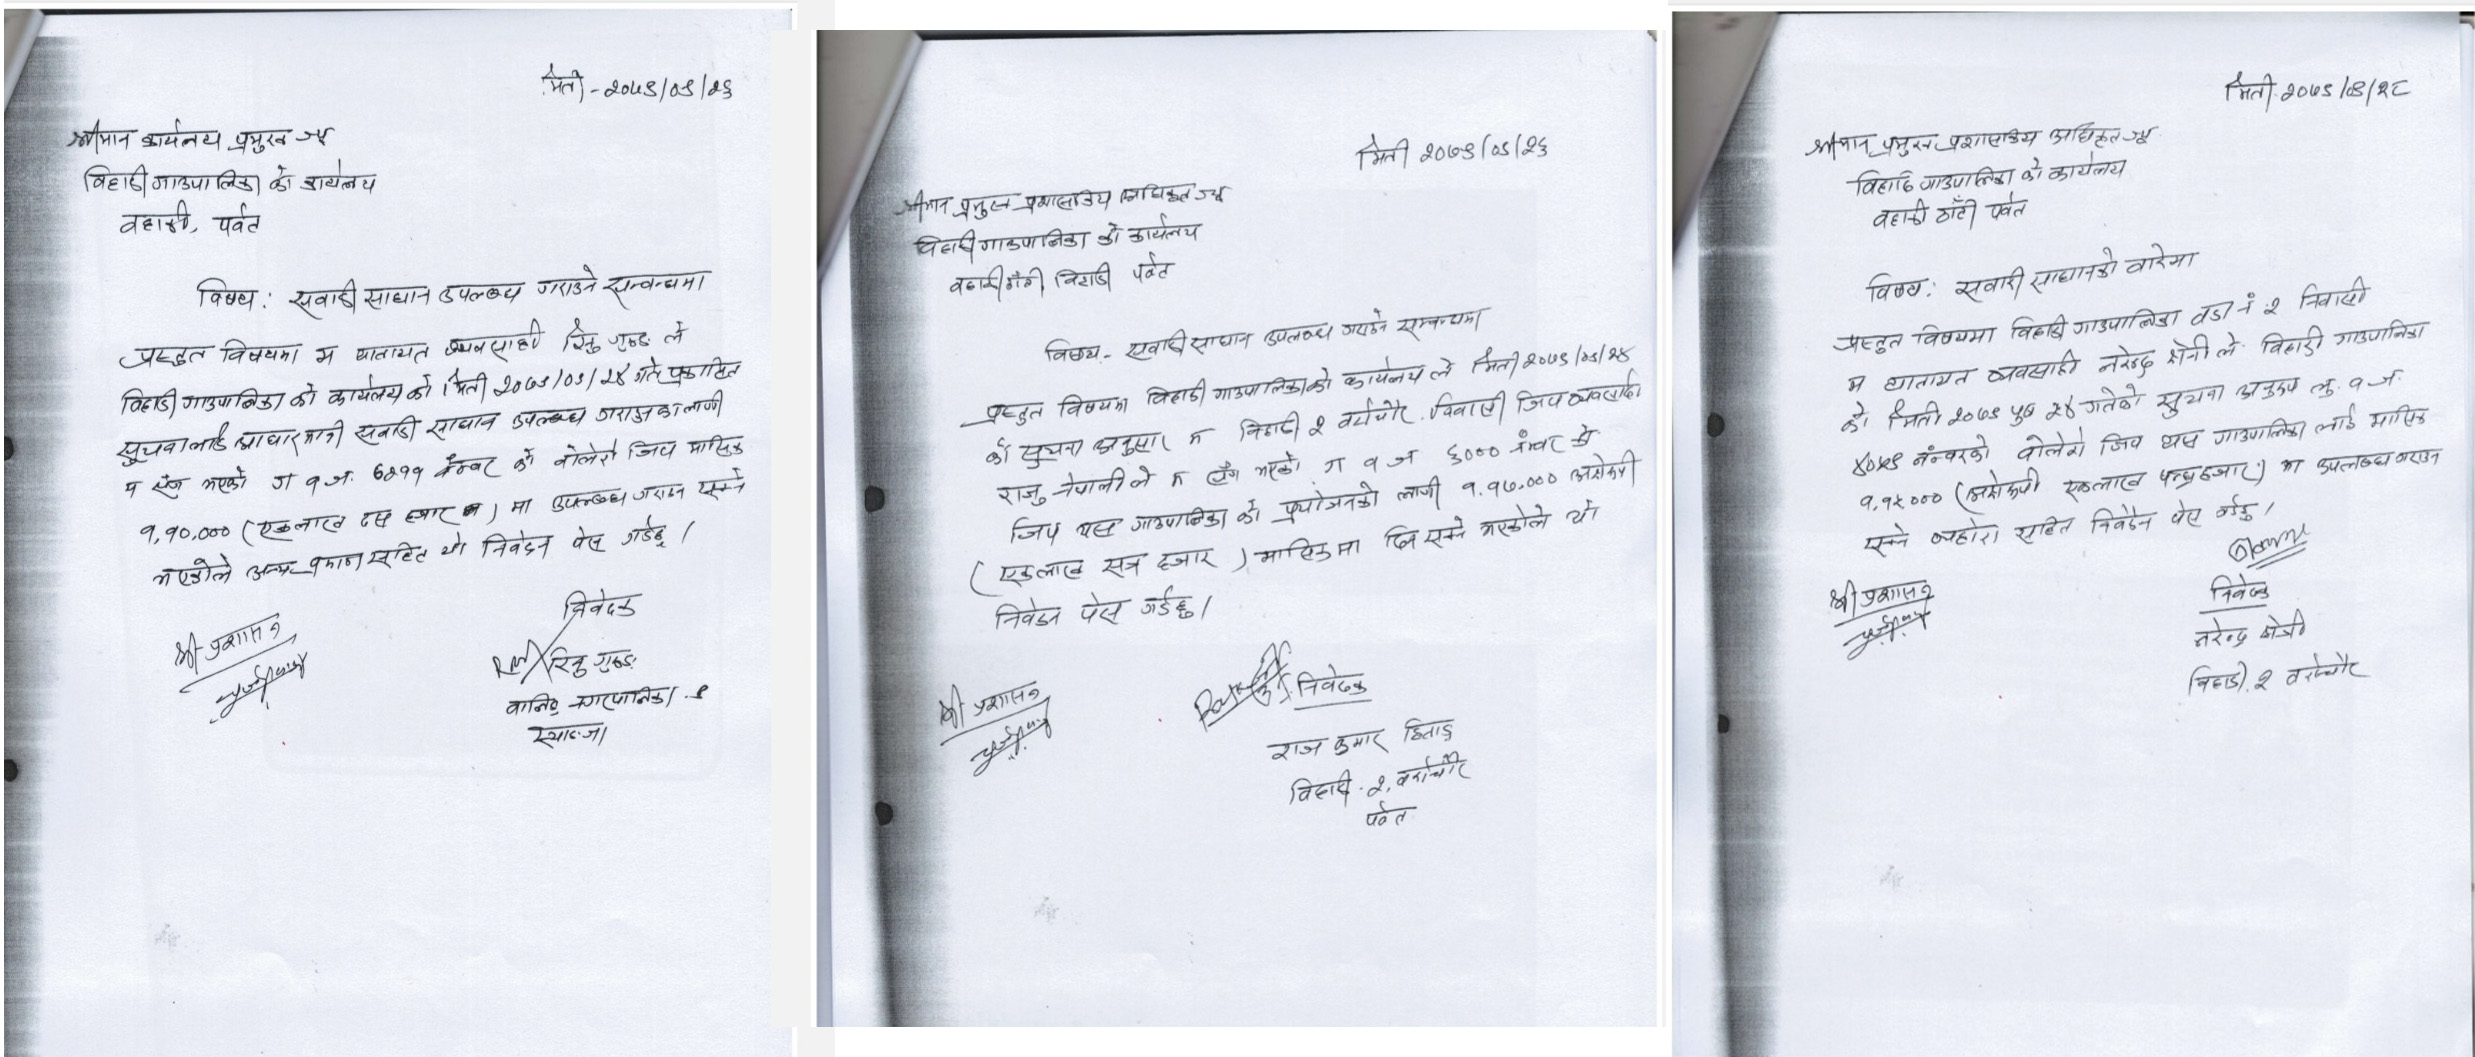 मिती - २०७५/०९/२६
श्रीमान कार्यलय प्रमुख ज्यू
विहादी गाउपालिका को कार्यलय
वहाकी, पर्वत
विषय: सवारी साधान उपलब्ध गराउने सम्वन्धमा
प्रस्तुत विषयमा म यातायत व्यवसाही रिनु गुरुङ ले
विहादी गाउपालिका को कार्यलय को मिती २०७५/०९/२४ गते प्रकासित
सुचना लाई आधार मानी सवारी साधान उपलब्ध गराउन का लागी
म सँग भएको ग १ ज. 6२११ नम्वर को वोलेरो जिप मासिक
१,१०,००० (एक लाख दस हजार) मा उपलब्ध गराउन सक्ने
भएकोले अन्य प्रमाण सहित यो निवेदन पेस गर्दछु।
श्री प्रशासन
निवेदक
रिनु गुरुङ
वालिङ नगरपालिका
स्याङजा
मिती २०७५/०९/२६
श्रीमान प्रमुख प्रशासकिय अधिकृत ज्यू
विहादी गाउपालिका को कार्यलय
वहाकी ठाँटी विहादी पर्वत
विषय - सवारी साधान उपलब्ध गराउने सम्वन्धमा
प्रस्तुत विषयमा विहादी गाउपालिका को कार्यलय ले मिती २०७५/०९/२४
को सुचना अनुसार म विहादी २ वर्राचौर निवासी जिप व्यवसायी
राजु नेपाली ले म सँग भएको ग १ ज ६००० नंम्वर को
जिप यस गाउपालिका को प्रयोजनको लागी १,१७,००० अक्षेरुपी
( एक लाख सत्र हजार ) मासिक मा दिन सक्ने भएकोले यो
निवेदन पेस गर्दछु।
श्री प्रशासन
निवेदक
राज कुमार
विहादी - २, वर्राचौर
पर्वत
मिती २०७५/०९/२८
श्रीमान प्रमुख प्रशासकिय अधिकृत ज्यू
विहादि गाउपालिका को कार्यलय
वहाकी ठाँटी पर्वत
विषय: सवारी साधानको वारेमा
प्रस्तुत विषयमा विहादी गाउपालिका वडा नं २ निवासी
म यातायत व्यवसाही नरेन्द्र क्षेत्री ले विहादी गाउपालिका
को मिती २०७५ पुष २४ गतेको सुचना अनुरुप लु. १ ज.
४०५९ नंम्वरको वोलेरो जिप यस गाउपालिका लाई मासिक
१,१५,००० (अक्षेरुपी एक लाख पन्ध्र हजार) मा उपलब्ध गराउन
सक्ने व्यहोरा सहित निवेदन पेस गर्दछु।
श्री प्रशासन
निवेदक
नरेन्द्र क्षेत्री
विहादी २ वर्राचौर